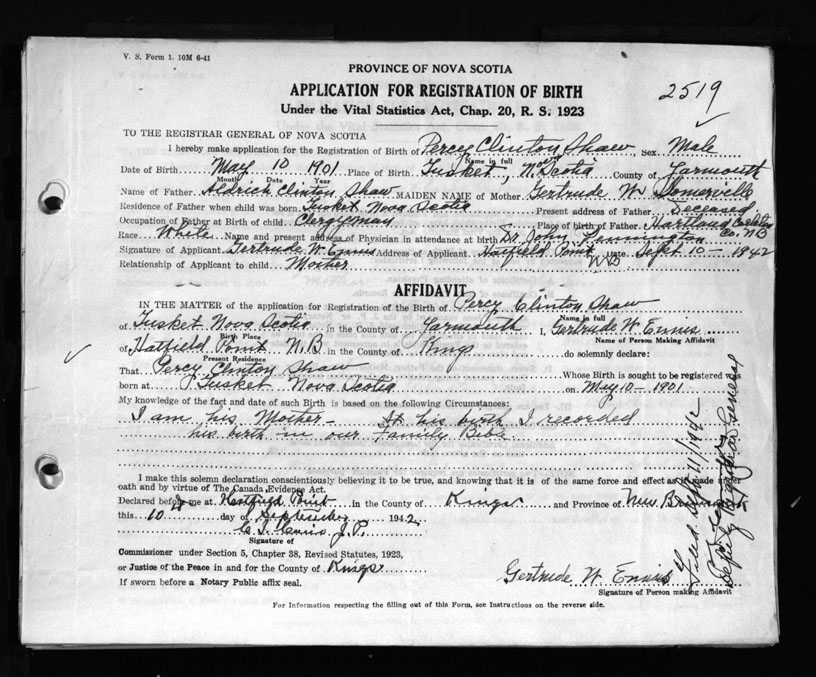 V. S. Form 1. 10M 6-41
PROVINCE OF NOVA SCOTIA
APPLICATION FOR REGISTRATION OF BIRTH
2519
Under the Vital Statistics Act, Chap. 20, R. S. 1923
TO THE REGISTRAR GENERAL OF NOVA SCOTIA
I hereby make application for the Registration of Birth of Percy Clinton Shaw, Sex Male
Name in full
Date of Birth May 10 1901 Place of Birth Tusket, Nova Scotia County of Yarmouth
Month Date Year
Name of Father Aldrich Clinton Shaw MAIDEN NAME of Mother Gertrude W Somerville
Residence of Father when child was born Tusket Nova Scotia Present address of Father Deceased
Occupation of Father at Birth of child Clergyman Place of birth of Father Hartland Co. NB
Race White Name and present address of Physician in attendance at birth Dr John
Signature of Applicant Gertrude W. Ennis Address of Applicant Hatfield Point NB Date Sept 10 - 1942
Relationship of Applicant to child Mother
AFFIDAVIT
IN THE MATTER of the application for Registration of the Birth of Percy Clinton Shaw
Name in full
of Tusket Nova Scotia in the County of Yarmouth I, Gertrude W. Ennis
Birth Place
Name of Person Making Affidavit
of Hatfield Point N.B in the County of Kings do solemnly declare:
Present Residence
That Percy Clinton Shaw Whose Birth is sought to be registered was
born at Tusket Nova Scotia on May 10 - 1901
My knowledge of the fact and date of such Birth is based on the following Circumstances:
I am his Mother - At his birth I recorded
his birth in our Family Bible
I make this solemn declaration conscientiously believing it to be true, and knowing that it is of the same force and effect as if made under
oath and by virtue of The Canada Evidence Act.
Declared before me at Hatfield Point in the County of Kings and Province of New
this 10 day of September 1942
J.P.
Signature of
Commissioner under Section 5, Chapter 38, Revised Statutes, 1923,
or Justice of the Peace in and for the County of Kings
If sworn before a Notary Public affix seal.
Gertrude W. Ennis
Signature of Person making Affidavit
For Information respecting the filling out of this Form, see Instructions on the reverse side.
Filed Sept 11/1942
Deputy Registrar General